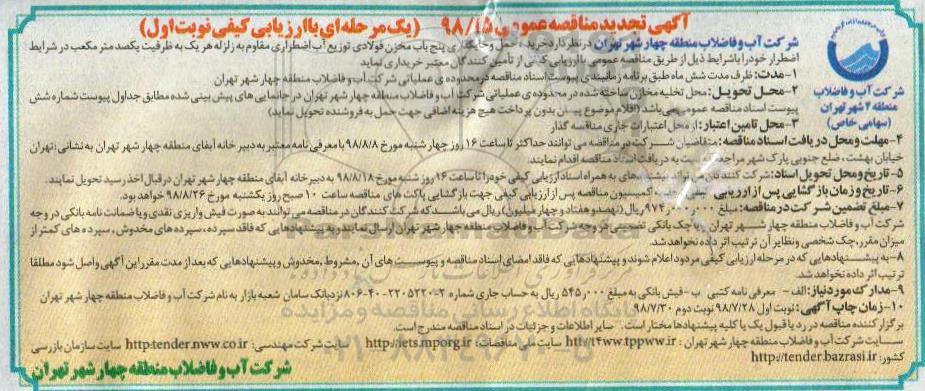 آگهی تجدید مناقصه عمومی ۹۸/۱۵ (یک مرحله‌ای با ارزیابی کیفی نوبت اول)
شرکت آب و فاضلاب منطقه چهار شهر تهران در نظر دارد خرید، حمل و جایگذاری پنج باب مخزن فولادی توزیع آب اضطراری مقاوم به زلزله هر یک به ظرفیت یکصد متر مکعب در شرایط
اضطرار خود را با شرایط ذیل از طریق مناقصه عمومی با ارزیابی کیفی از تأمین کنندگان معتبر خریداری نماید
۱-مدت: ظرف مدت شش ماه طبق برنامه زمانبندی پیوست اسناد مناقصه در محدوده ی عملیاتی شرکت آب و فاضلاب منطقه چهار شهر تهران
۲-محل تحویل: محل تخلیه مخازن ساخته شده در محدوده ی عملیاتی شرکت آب و فاضلاب منطقه چهار شهر تهران در جانمایی های پیش بینی شده مطابق جداول پیوست شماره شش
پیوست اسناد مناقصه عمومی می باشد (اقلام موضوع پیمان بدون پرداخت هیچ هزینه اضافی جهت حمل به فروشنده تحویل نماید)
۳-محل تامین اعتبار: از محل اعتبارات جاری مناقصه گذار
شرکت آب و فاضلاب
منطقه ۴ شهر تهران
(سهامی خاص)
۴-مهلت و محل دریافت اسناد مناقصه: متقاضیان شرکت در مناقصه می توانند حداکثر تا ساعت ۱۶ روز چهار شنبه مورخ ۹۸/۸/۸ با معرفی نامه معتبر به دبیر خانه آبفای منطقه چهار شهر تهران به نشانی: تهران
خیابان بهشت، ضلع جنوبی پارک شهر مراجعه نسبت به دریافت اسناد مناقصه اقدام نمایند.
۵-تاریخ و محل تحویل اسناد: شرکت کنندگان می توانند پیشنهادهای به همراه اسناد ارزیابی کیفی خود را تا ساعت ۱۶ روز شنبه مورخ ۹۸/۸/۱۸ به دبیر خانه آبفای منطقه چهار شهر تهران در قبال اخذ رسید تحویل نمایند.
۶-تاریخ و زمان بازگشایی پس از ارزیابی کیفی: کمیسیون مناقصه پس از ارزیابی کیفی جهت بازگشایی پاکت های مناقصه ساعت ۱۰ صبح روز یکشنبه مورخ ۹۸/۸/۲۶ خواهد بود.
۷-مبلغ تضمین شرکت در مناقصه: مبلغ ۹۷۴٫۰۰۰٫۰۰۰ ریال (نهصد و هفتاد و چهار میلیون) ریال می باشد که شرکت کنندگان در مناقصه می توانند به صورت فیش واریزی نقدی و یا ضمانت نامه بانکی در وجه
شرکت آب و فاضلاب منطقه چهار شهر تهران و یا چک بانکی تضمینی در وجه شرکت آب و فاضلاب منطقه چهار شهر تهران ارسال نمایند و به پیشنهادهایی که فاقد سپرده، سپرده های مخدوش، سپرده های کمتر از
میزان مقرر، چک شخصی و نظایر آن ترتیب اثر داده نخواهد شد.
۸-به پیشنهادهایی که در مرحله ارزیابی کیفی مردود اعلام شوند و پیشنهادهایی که فاقد امضای اسناد مناقصه و پیوست های آن، مشروط، مخدوش و پیشنهادهایی که بعد از مدت مقرر این آگهی واصل شود مطلقا
ترتیب اثر داده نخواهد شد.
۹-مدارک مورد نیاز: الف - معرفی نامه کتبی ب- فیش بانکی به مبلغ ۵۴۵٫۰۰۰ ریال به حساب جاری شماره ۲-۲۲۰۵۲۲۰-۴۰-۸۰۶ نزد بانک سامان شعبه بازار به نام شرکت آب و فاضلاب منطقه چهار شهر تهران
۱۰-زمان چاپ آگهی: نوبت اول ۹۸/۷/۲۸ نوبت دوم ۹۸/۷/۳۰
برگزار کننده مناقصه در رد یا قبول یک یا کلیه پیشنهادها مختار است. سایر اطلاعات و جزئیات در اسناد مناقصه مندرج است.
سایت شرکت آب و فاضلاب منطقه چهار شهر تهران: http://t4ww.tpww.ir سایت ملی مناقصات: http://iets.mporg.ir سایت شرکت مهندسی: http:tender.nww.co.ir سایت سازمان بازرسی
کشور: http://tender.bazrasi.ir
شرکت آب و فاضلاب منطقه چهار شهر تهران